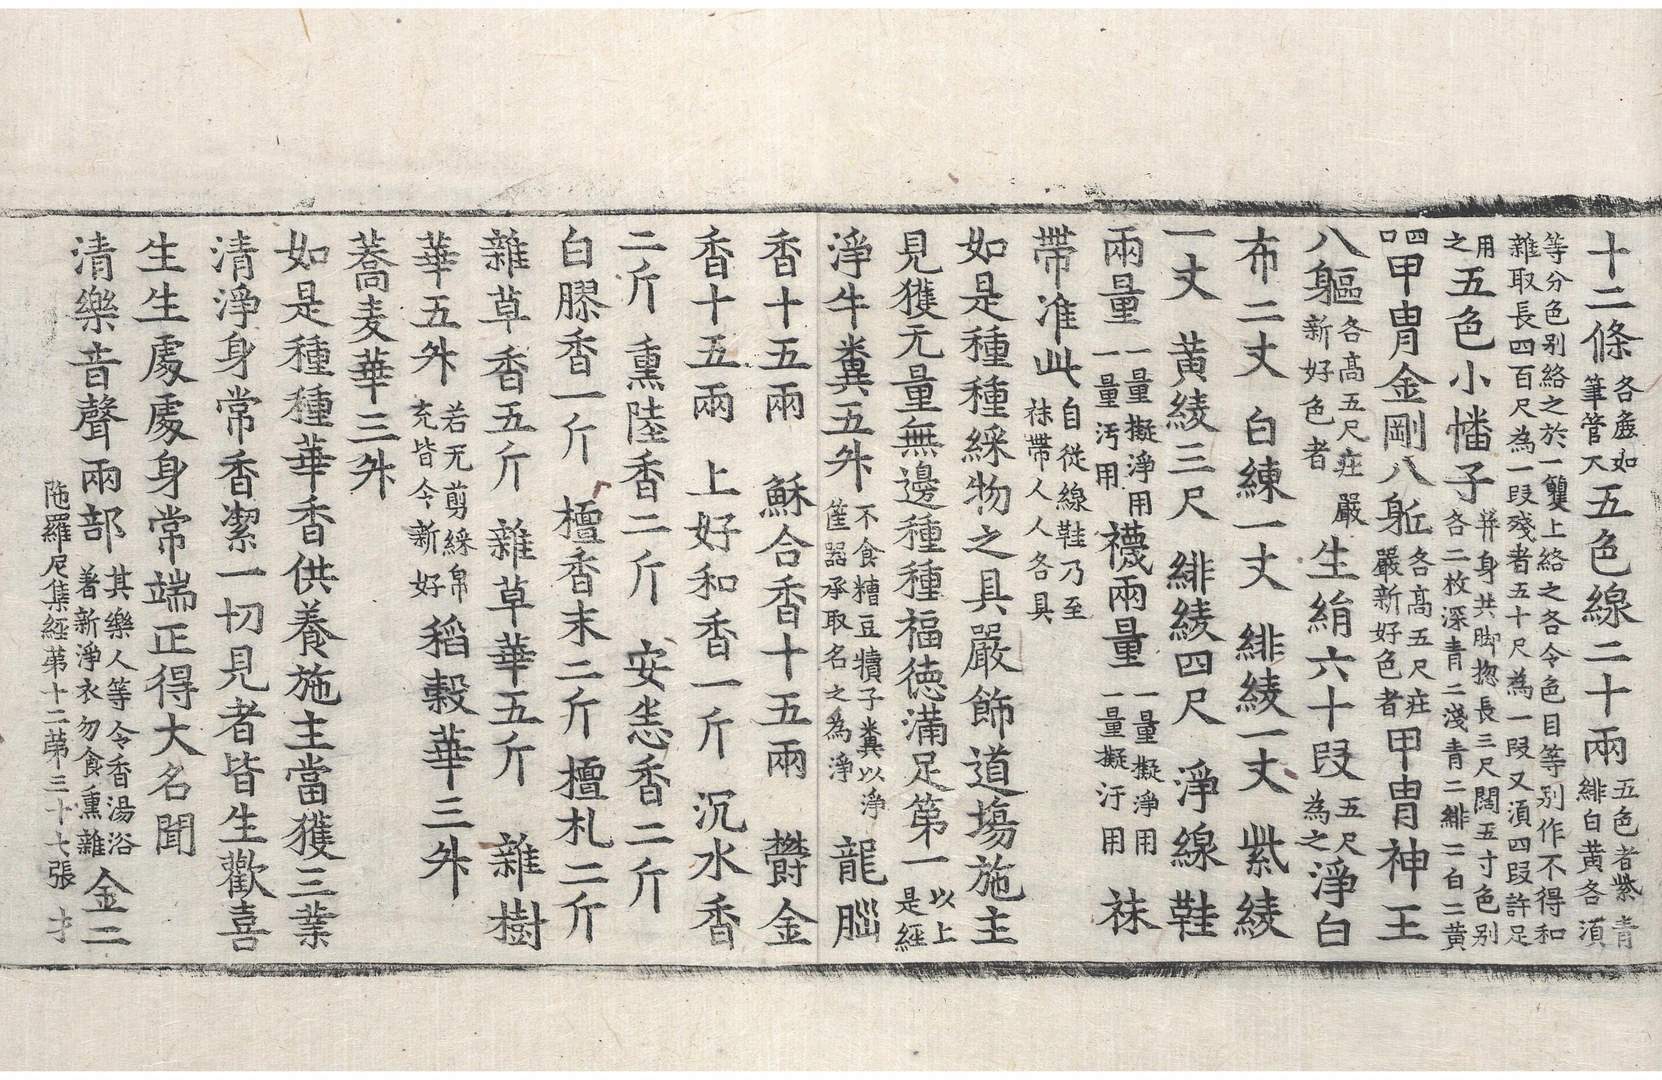 十二條各麁如筆管大五色線二十兩五色者紫青緋白黃各湏
等分色別絡之於一籰上絡之各令色目等別作不得和雜取長四百尺為一段殘者五十尺為一段又湏四段許足
用之五色小幡子并身共脚揔長三尺闊五寸色別各二枚深青二淺青二緋二白二黃
四口甲胄金剛八軀各高五尺莊嚴新好色者甲胄神王
八軀各高五尺莊嚴新好色者生絹六十段五尺為之淨白
布二丈 白練一丈 緋綾一丈 紫綾
一丈 黃綾三尺 緋綾四尺 淨線鞋
兩量一量擬淨用一量汚用襪兩量一量擬淨用一量擬汙用 袜
帶准此自從線鞋乃至袜帶人人各具
如是種種綵物之具嚴飾道塲施主
見獲无量無邊種種福德滿足第一以上是經
淨牛糞五升不食糟豆犢子糞以淨篚器承取名之為淨 龍腦
香十五兩 蘇合香十五兩 欝金
香十五兩 上好和香一斤 沉水香
二斤 熏陸香二斤 安悉香二斤
白膠香一斤 檀香末二斤 檀札二斤
雜草香五斤 雜草華五斤 雜樹
華五升若无剪綵帛充皆令新好 稻穀華三升
蕎麦華三升
如是種種華香供養施主當獲三業
清淨身常香潔一切見者皆生歡喜
生生處處身常端正得大名聞
清樂音聲兩部其樂人等令香湯浴著新淨衣勿食熏雜 金二
陁羅尼集經第十二 第三十七張 才